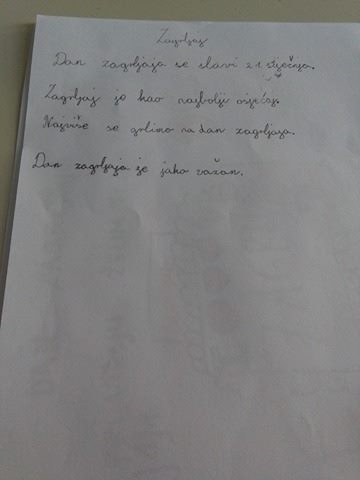 Zagrljaj
Dan zagrljaja se slavi 21 siječnja.
Zagrljaj je kao najbolji osjećaj.
Najviše se grlimo na dan zagrljaja.
Dan zagrljaja je jako važan.